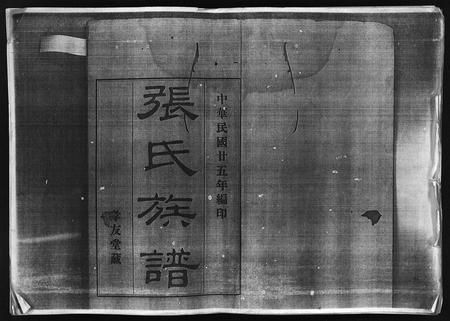 中華民國廿五年編印
張氏族譜
友堂藏